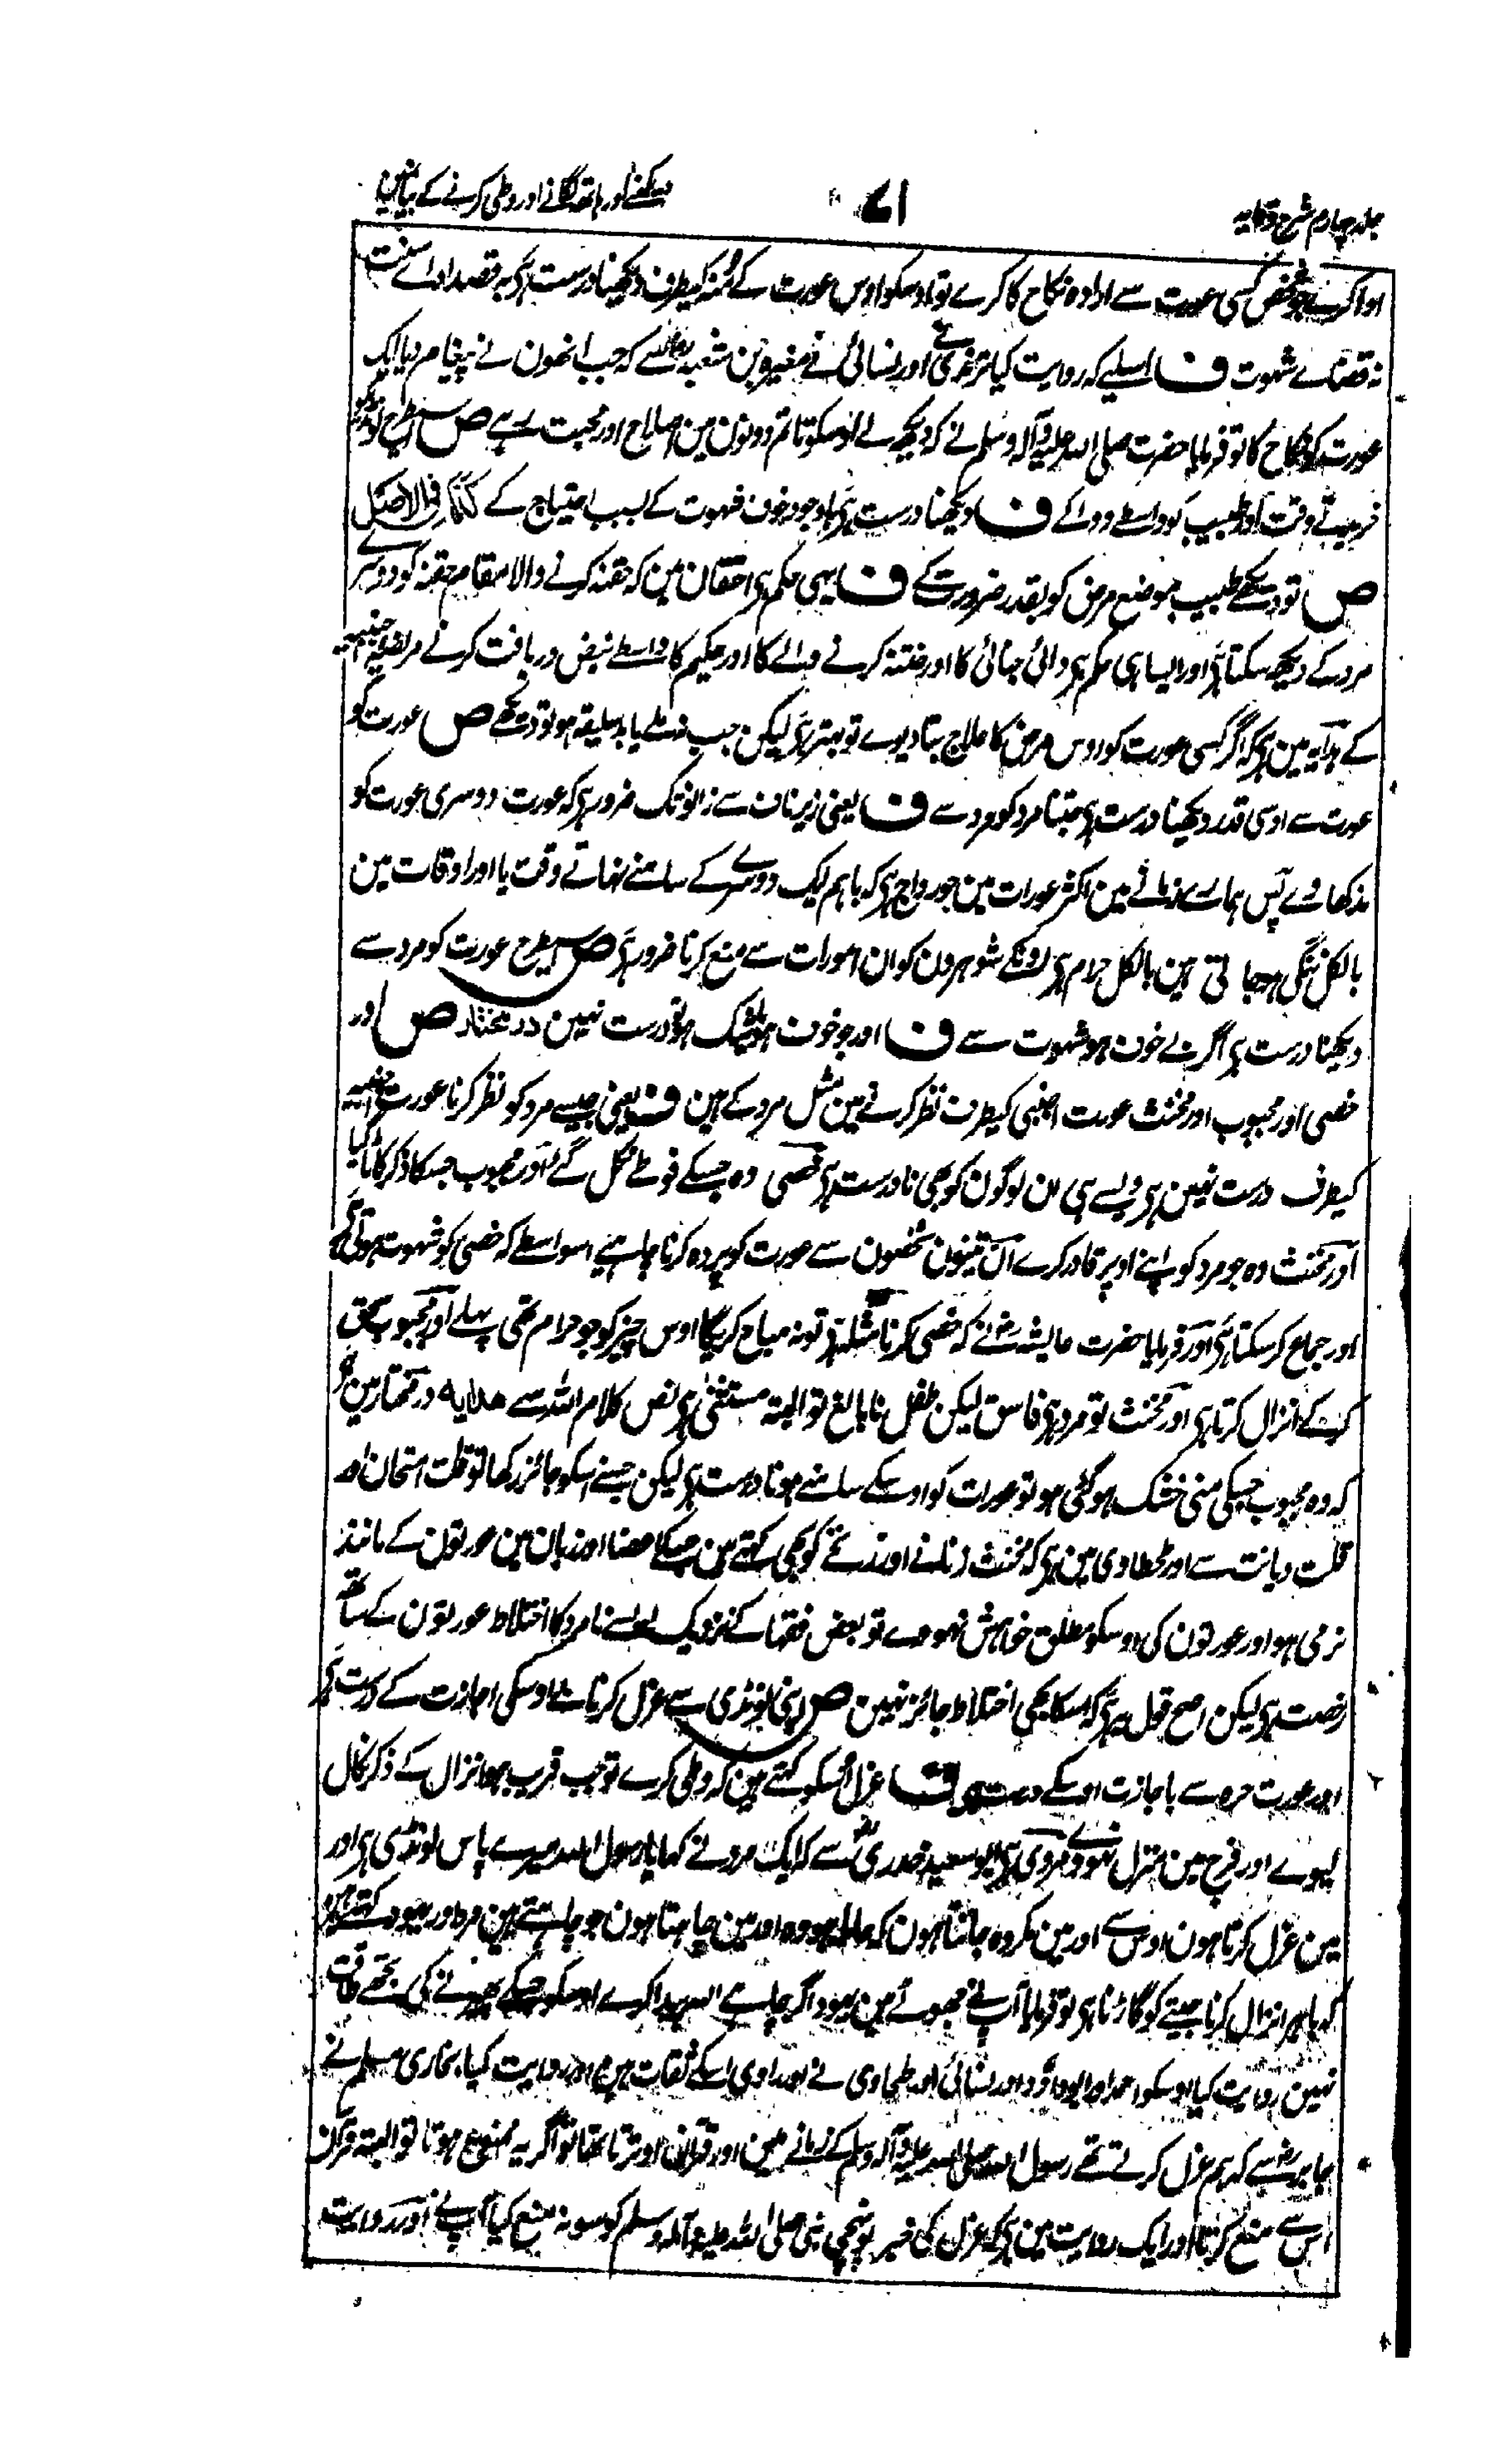 جلد چہارم شرح وقایہ
۷۱
دیکھنے اور ہاتھ لگانے اور وطی کرنے کے بیان مین
ادا کرے جو شخص کسی عورت سے ارادہ نکاح کا کرے تو اوسکو اوس عورت کے منہ کیطرف دیکھنا درست ہی بہ قصد اداے سنت
نہ قضاے شہوت ف اسلیے کہ روایت کیا ترمذی نے اور نسائی نے مغیرہ بن شعبہ سے کہ جب انھون نے پیغام دیا ایک
عورت کو نکاح کا تو فرمایا حضرت صلی اللہ علیہ وآلہ وسلم نے کہ دیکھ لے اوسکو تا تم دونون مین اصلاح اور محبت رہے ص اسیطرح لونڈی کو
خریدتے وقت اور طبیب کو واسطے دوا کے ف دیکھنا درست ہی باوجود خوف شہوت کے بسبب احتیاج کے کذا فی الاصل
ص تو دیکھے طبیب موضع مرض کو بقدر ضرورت کے ف یہی حکم ہی احتقان مین کہ حقنہ کرنے والا مقام حقنہ کو دوسرے
مرد کے دیکھ سکتا ہی اور ایسا ہی حکم ہی دائی جنائی کا اور ختنہ کرنے والے کا اور حکیم کا واسطے نبض دریافت کرنے مریضہ اجنبیہ
کے ہدایہ مین ہی کہ اگر کسی عورت کو اوس مرض کا علاج بتا دیوے تو بہتر ہی لیکن جب نہ ملے یا بد سلیقہ ہو تو دیکھے ص عورت کو
عورت سے اوسی قدر دیکھنا درست ہی جتنا مرد کو مرد سے ف یعنی زیر ناف سے زانو تک ضرور ہی کہ عورت دوسری عورت کو
نہ دکھاوے پس ہمارے زمانے مین اکثر عورات مین جو رواج ہی کہ باہم ایک دوسرے کے سامنے نہاتے وقت یا اور اوقات مین
بالکل ننگی ہو جاتی ہین بالکل حرام ہی اونکے شوہرون کو ان امورات سے منع کرنا ضرور ہی ص اسیطرح عورت کو مرد سے
دیکھنا درست ہی اگر بے خوف ہو شہوت سے ف اور جو خوف ہو یا شک ہو تو درست نہین در مختار ص اور
خصی اور مجبوب اور مخنث عورت اجنبی کیطرف نظر کرنے مین مثل مرد کے ہین ف یعنی جیسے مرد کو نظر کرنا عورت اجنبیہ
کیطرف درست نہین ہی ویسے ہی ان لوگون کو بھی نا درست ہی خصی وہ جسکے فوطے نکل گئے اور مجبوب جسکا ذکر کاٹا گیا
اور مخنث وہ جو مرد کو اپنے اوپر قادر کرے ان تینون شخصون سے عورت کو پردہ کرنا چاہیے اسواسطے کہ خصی کو شہوت ہوتی ہی
اور جماع کر سکتا ہی اور فرمایا حضرت عایشہ نے کہ خصی کرنا مثلہ ہی تو نہ مباح کریگا اوس چیز کو جو حرام تھی پہلے اور مجبوب سحق
کر کے انزال کرتا ہی اور مخنث تو مرد ہی فاسق لیکن طفل نابالغ تو البتہ مستثنیٰ ہی نص کلام اللہ سے ھدایہ در مختار مین ہی
کہ وہ مجبوب جسکی منی خشک ہو گئی ہو تو عورات کو اوسکے سامنے ہونا درست ہی لیکن جسنے اسکو جائز رکھا تو قلت امتحان اور
قلت دیانت سے اور طحطاوی مین ہی کہ مخنث زنانے اور زنخے کو بھی کہتے ہین جسکے اعضا اور زبان مین عورتون کے مانند
نرمی ہو اور عورتون کی اوسکو مطلق خواہش نہووے تو بعض فقہا کے نزدیک ایسے نامرد کا اختلاط عورتون کے ساتھ
رخصت ہی لیکن اصح قول یہ ہی کہ اسکا بھی اختلاط جائز نہین ص اپنی لونڈی سے عزل کرنا بے اوسکی اجازت کے درست ہی
اور عورت حرہ سے با جازت اوسکے درست ہی ف عزل اسکو کہتے ہین کہ وطی کرے تو جب قریب ہو انزال کے ذکر نکال
لیوے اور فرج مین منزل نہووے مروی ہی ابو سعید خدری سے کہ ایک مرد نے کہا یا رسول اللہ میرے پاس لونڈی ہی اور
مین عزل کرتا ہون اوس سے اور مین مکروہ جانتا ہون کہ حاملہ ہووہ اور مین چاہتا ہون جو چاہتے ہین مرد اور یہود کہتے ہین
کہ باہر انزال کرنا جیتے کو گاڑنا ہی تو فرمایا آپ نے جھوٹے ہین یہود اگر چاہے اللہ پیدا کرے اوسکو جسکے پھیرنے کی تجھے طاقت
نہین روایت کیا اوسکو احمد اور ابو داؤد اور نسائی اور طحاوی نے اور راوی اسکے ثقات ہین اور روایت کیا بخاری مسلم نے
جابر سے کہ ہم عزل کرتے تھے رسول اللہ صلی اللہ علیہ وآلہ وسلم کے زمانے مین اور قرآن اوترتا تھا تو اگر یہ ممنوع ہوتا تو البتہ قرآن
اس سے منع کرتا اور ایک روایت مین ہی کہ عزل کی خبر پونہچی نبی صلی اللہ علیہ وآلہ وسلم کو سو نہ منع کیا آپ نے اور روایت